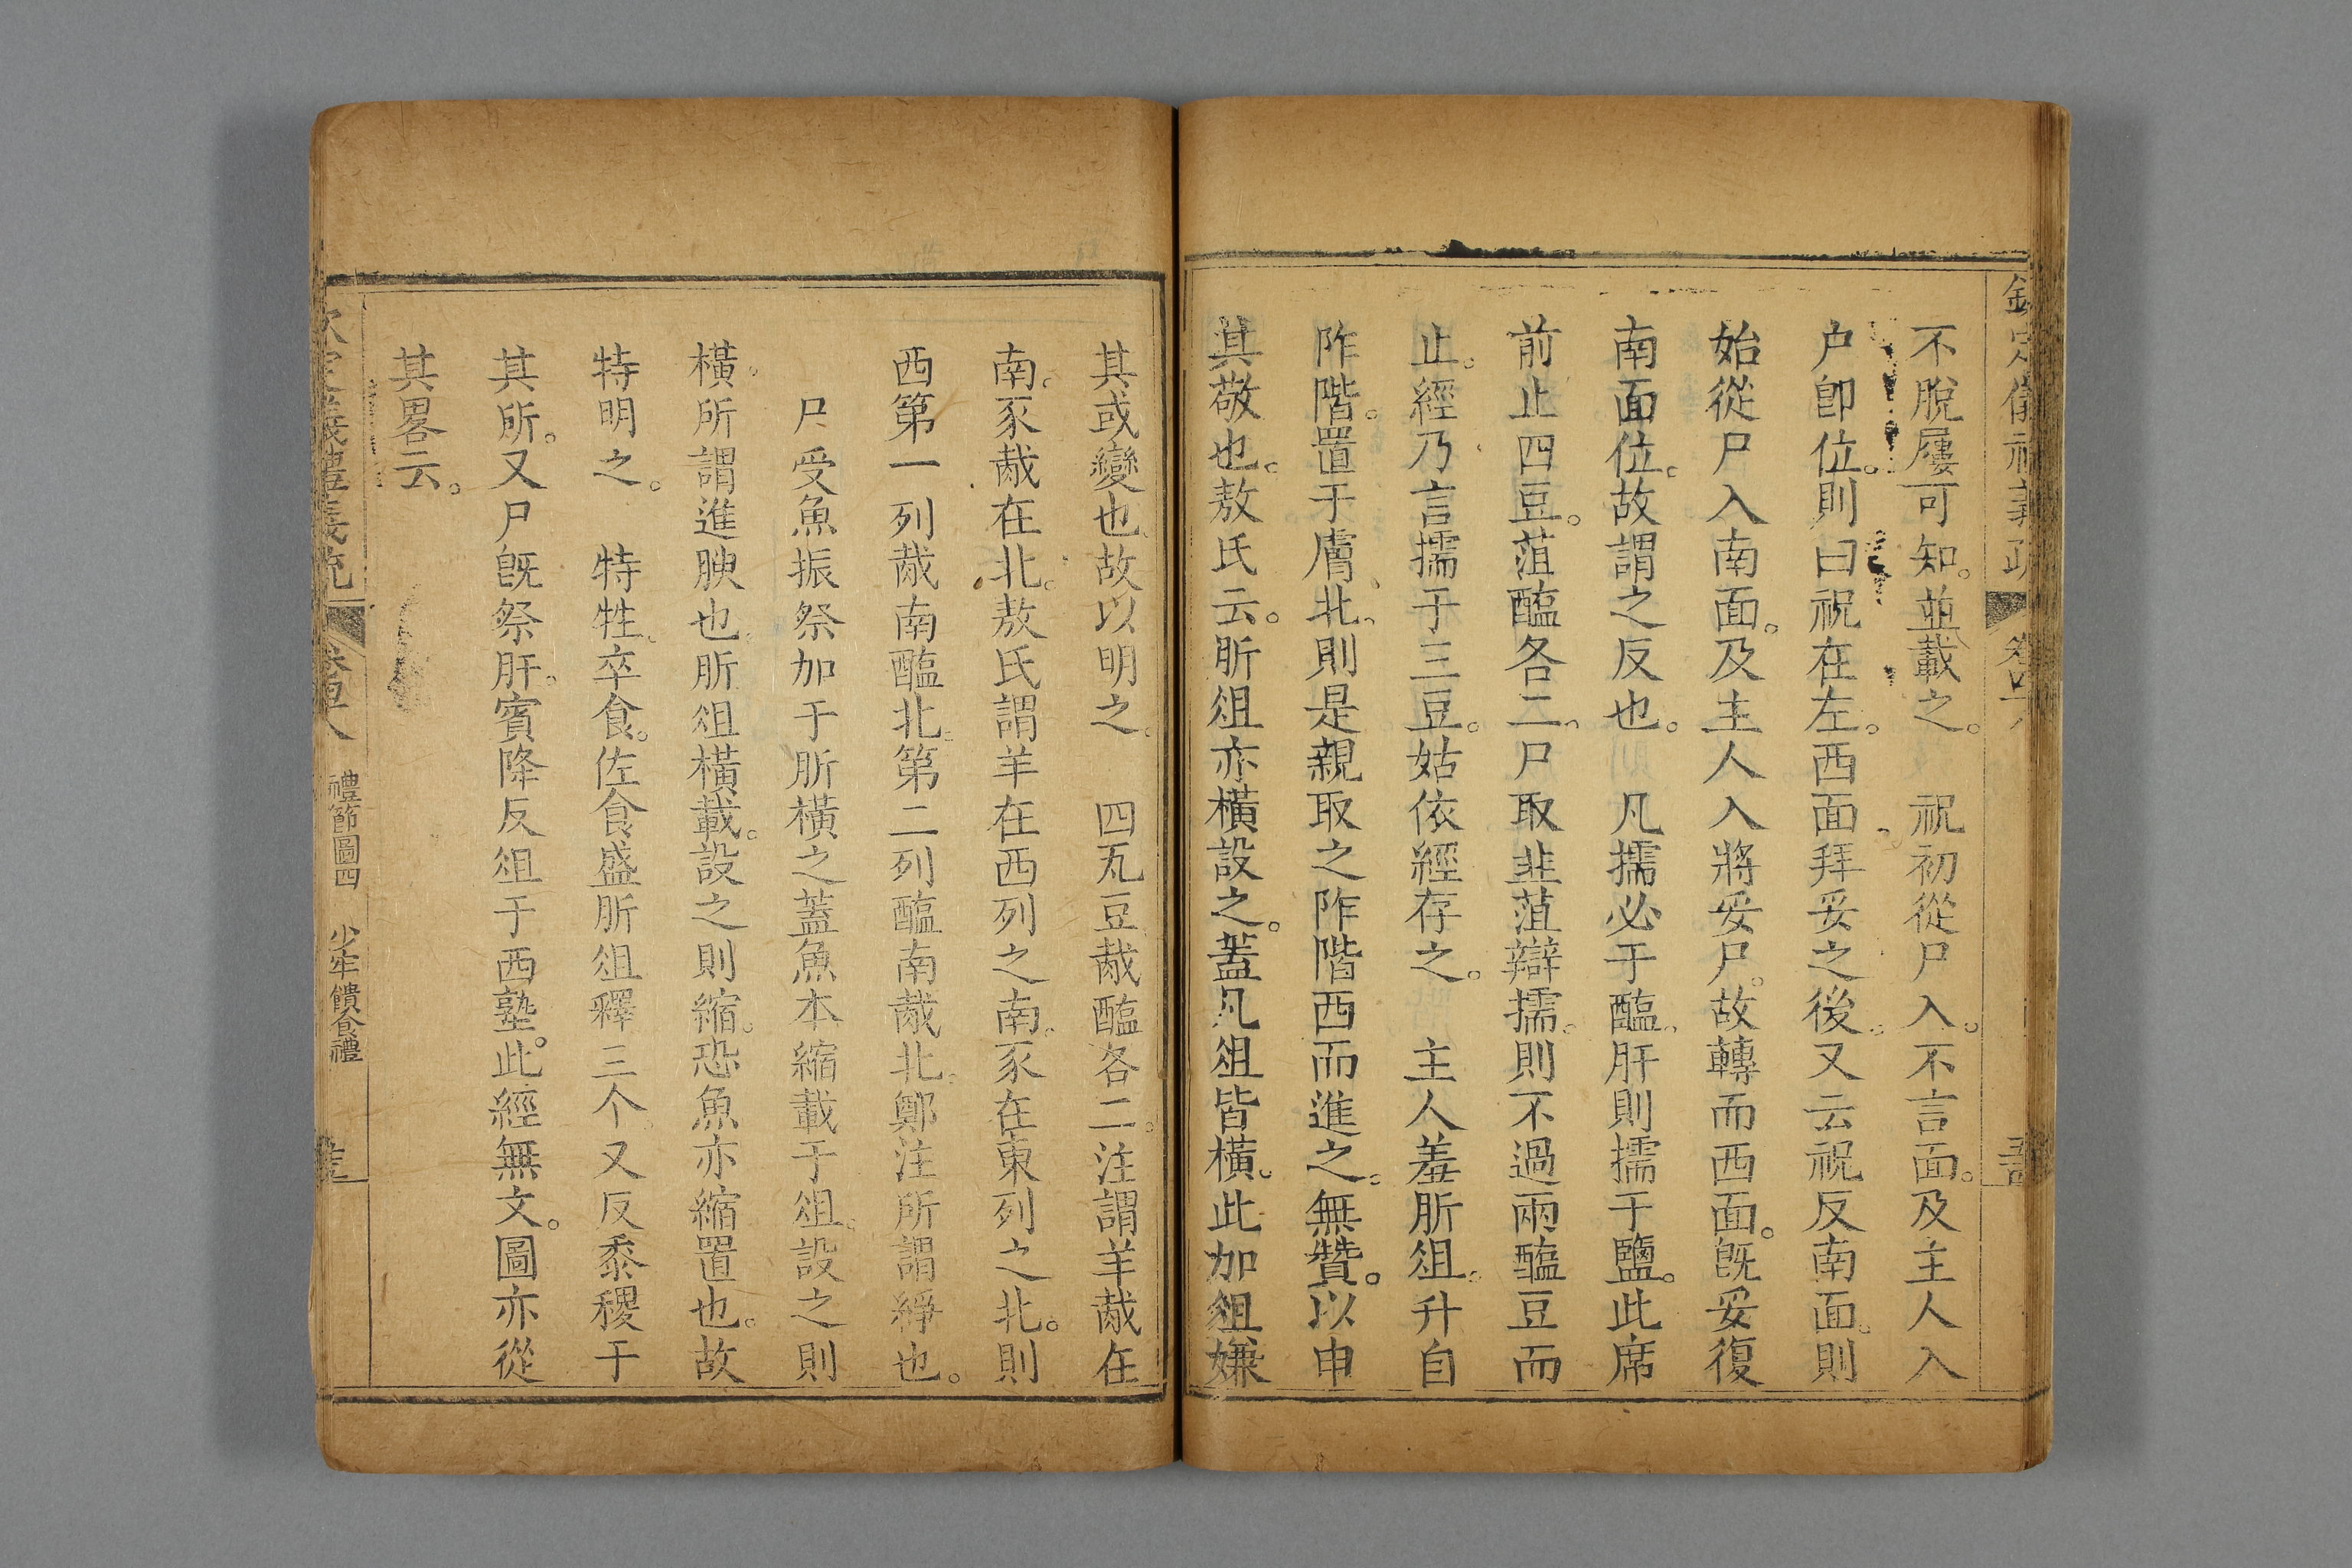 不脫屨可知。並載之。　祝初從尸入。不言面。及主人入
户卽位。則曰祝在左。西面拜妥之後。又云祝反南面。則
始從尸入南面。及主人入將妥尸。故轉而西面。旣妥復
南面位。故謂之反也。　凡擩必于醢。肝則擩于鹽。此席
前止四豆。菹醢各二。尸取韭菹辯擩。則不過兩醢豆而
止。經乃言擩于三豆。姑依經存之。　主人羞肵俎。升自
阼階。置于膚北。則是親取之阼階西而進之。無贊。以申
其敬也。敖氏云。肵俎亦橫設之。蓋凡俎皆橫。此加俎嫌
其或變也。故以明之。　四瓦豆胾醢各二。注謂羊胾在
南。豕胾在北。敖氏謂羊在西列之南。豕在東列之北。則
西第一列胾南醢北。第二列醢南胾北。鄭注所謂綪也。
尸受魚振祭加于肵橫之。蓋魚本縮載于俎。設之則
橫。所謂進腴也。肵俎橫載。設之則縮。恐魚亦縮置也。故
特明之。　特牲。卒食。佐食盛肵俎。釋三个。又反黍稷于
其所。又尸旣祭肝。賓降反俎于西塾。此經無文。圖亦從
其畧云。
禮節圖四　少牢饋食禮